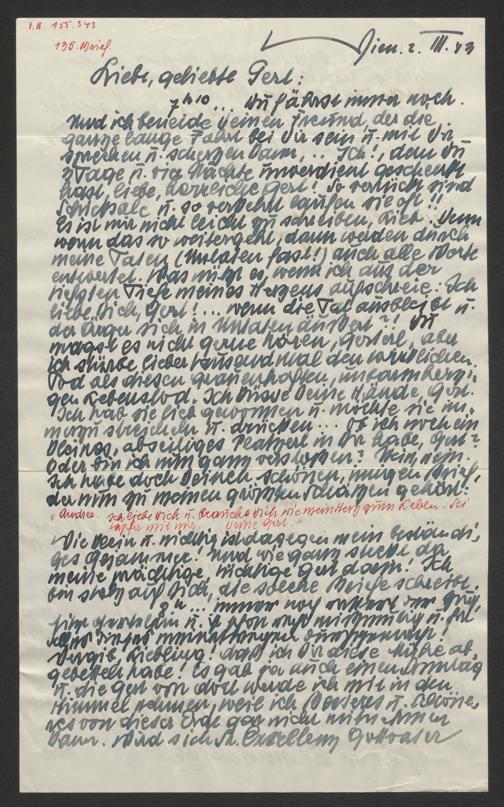 I.N. 155.343
136. Brief.
Wien. 2. III. 43
Liebe, geliebte Gert:
7h10 ... Du fährst immer noch.
Und ich beneide Deinen Freund, der die
ganze lange Fahrt bei Dir sein u. mit Dir
sprechen u. scherzen kann, ... Ich!, dem Du
3 Tage u. Nächte unverdient geschenkt
hast, liebe, herrliche Gert! So verrückt sind
Schicksale u. so verkehrt laufen sie oft!!
Es ist mir nicht leicht zu schreiben, Denn
wenn das so weitergeht, dann werden durch
meine Taten (Untaten fast!) auch alle Worte
entwertet. Was nützt es, wenn ich aus der
tiefsten Tiefe meines Herzens aufschreie: Ich
liebe Dich, Gert! ... wenn die Tat ausbleibt u.
der Auger sich in Untaten äußert?! Du
magst es nicht gerne hören, Gerterl, aber
ich stürbe lieber tausendmal den wirklichen
Tod als diesen grauenhaften, unbarmherzi-
gen Lebenstod. Ich küsse Deine Hände, Gert.
Ich hab sie lieb gewonnen u. möchte sie im-
merzu streicheln u. drücken ... Ob ich noch ein
kleines, abseitiges in Dir habe, Gert?
Oder bin ich nun ganz verstoßen? Nein, nein.
Ich habe doch Deinen schönen, Brief,
der nun zu meinen größten Schätzen gehört!
"Andreo. Ich liebe Dich u. brauche Dich wie meinen zum Leben. Sei
mit mir. Deine Gert."
Wie klein u. nichtig ist dagegen mein beständi-
ges Gejammer! Und wie ganz steht da
meine prächtige, tüchtige Gert da! Ich
bin stolz auf Dich, die solche Briefe schreibt.
8h ... immer noch der Zug,
u.
Vergib Liebling! daß ich Dir diese Mühe ab-
gebettelt habe! Es gab ja auch einen Sonntag
u. die Gert von dort werde ich mit in den
Himmel nehmen, weil ich Besseres u. Schöne-
res von dieser Erde gar nicht mitnehmen
kann. Wird sich Sr. Exzellenz Gottvater